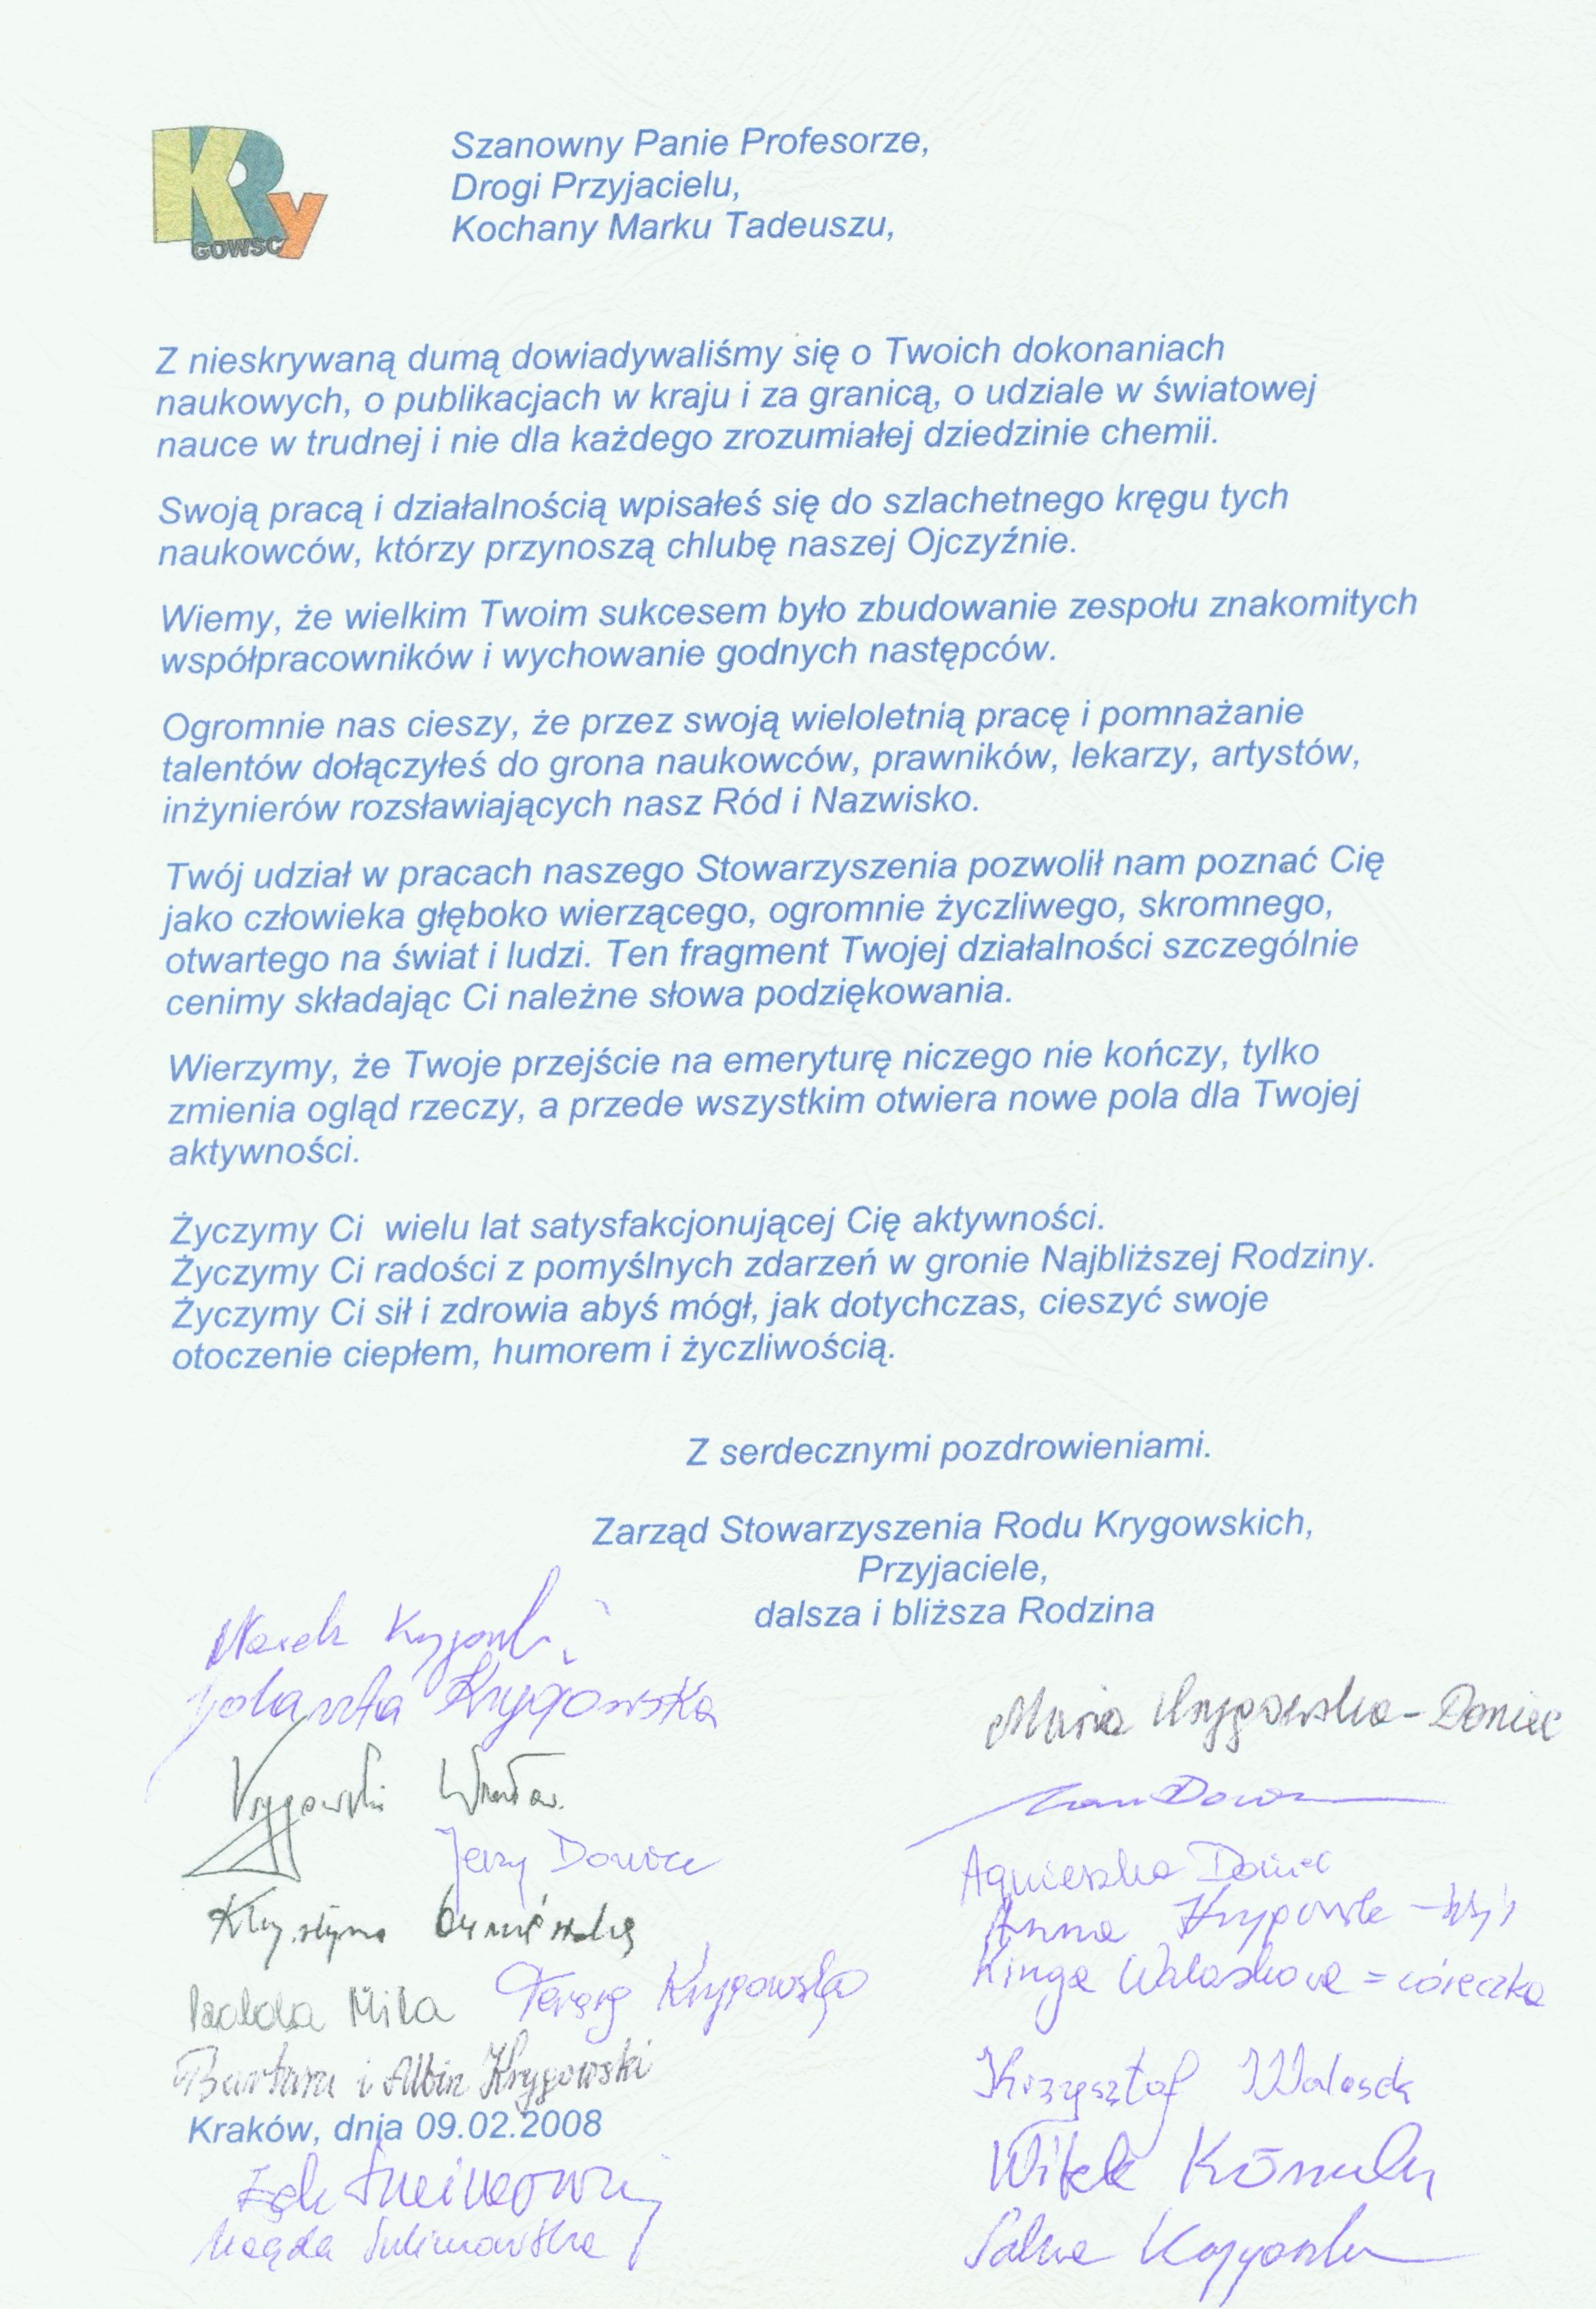 KRy
GOWSC
Szanowny Panie Profesorze,
Drogi Przyjacielu,
Kochany Marku Tadeuszu,
Z nieskrywaną dumą dowiadywaliśmy się o Twoich dokonaniach
naukowych, o publikacjach w kraju i za granicą, o udziale w światowej
nauce w trudnej i nie dla każdego zrozumiałej dziedzinie chemii.
Swoją pracą i działalnością wpisałeś się do szlachetnego kręgu tych
naukowców, którzy przynoszą chlubę naszej Ojczyźnie.
Wiemy, że wielkim Twoim sukcesem było zbudowanie zespołu znakomitych
współpracowników i wychowanie godnych następców.
Ogromnie nas cieszy, że przez swoją wieloletnią pracę i pomnażanie
talentów dołączyłeś do grona naukowców, prawników, lekarzy, artystów,
inżynierów rozsławiających nasz Ród i Nazwisko.
Twój udział w pracach naszego Stowarzyszenia pozwolił nam poznać Cię
jako człowieka głęboko wierzącego, ogromnie życzliwego, skromnego,
otwartego na świat i ludzi. Ten fragment Twojej działalności szczególnie
cenimy składając Ci należne słowa podziękowania.
Wierzymy, że Twoje przejście na emeryturę niczego nie kończy, tylko
zmienia ogląd rzeczy, a przede wszystkim otwiera nowe pola dla Twojej
aktywności.
Życzymy Ci wielu lat satysfakcjonującej Cię aktywności.
Życzymy Ci radości z pomyślnych zdarzeń w gronie Najbliższej Rodziny.
Życzymy Ci sił i zdrowia abyś mógł, jak dotychczas, cieszyć swoje
otoczenie ciepłem, humorem i życzliwością.
Z serdecznymi pozdrowieniami.
Zarząd Stowarzyszenia Rodu Krygowskich,
Przyjaciele,
dalsza i bliższa Rodzina
Marek Krygowski
Jolanta Krygowska
Maria Krygowska-Doniec
Krygowski
Jerzy Doniec
Agnieszka Doniec
Krystyna
Anna Krygowska
Teresa Krygowska
Kinga Walaskowa = córeczka
Izolda Mika
Barbara i Albin Krygowski
Krzysztof Walasek
Kraków, dnia 09.02.2008
Witek
Magda Sulimowska